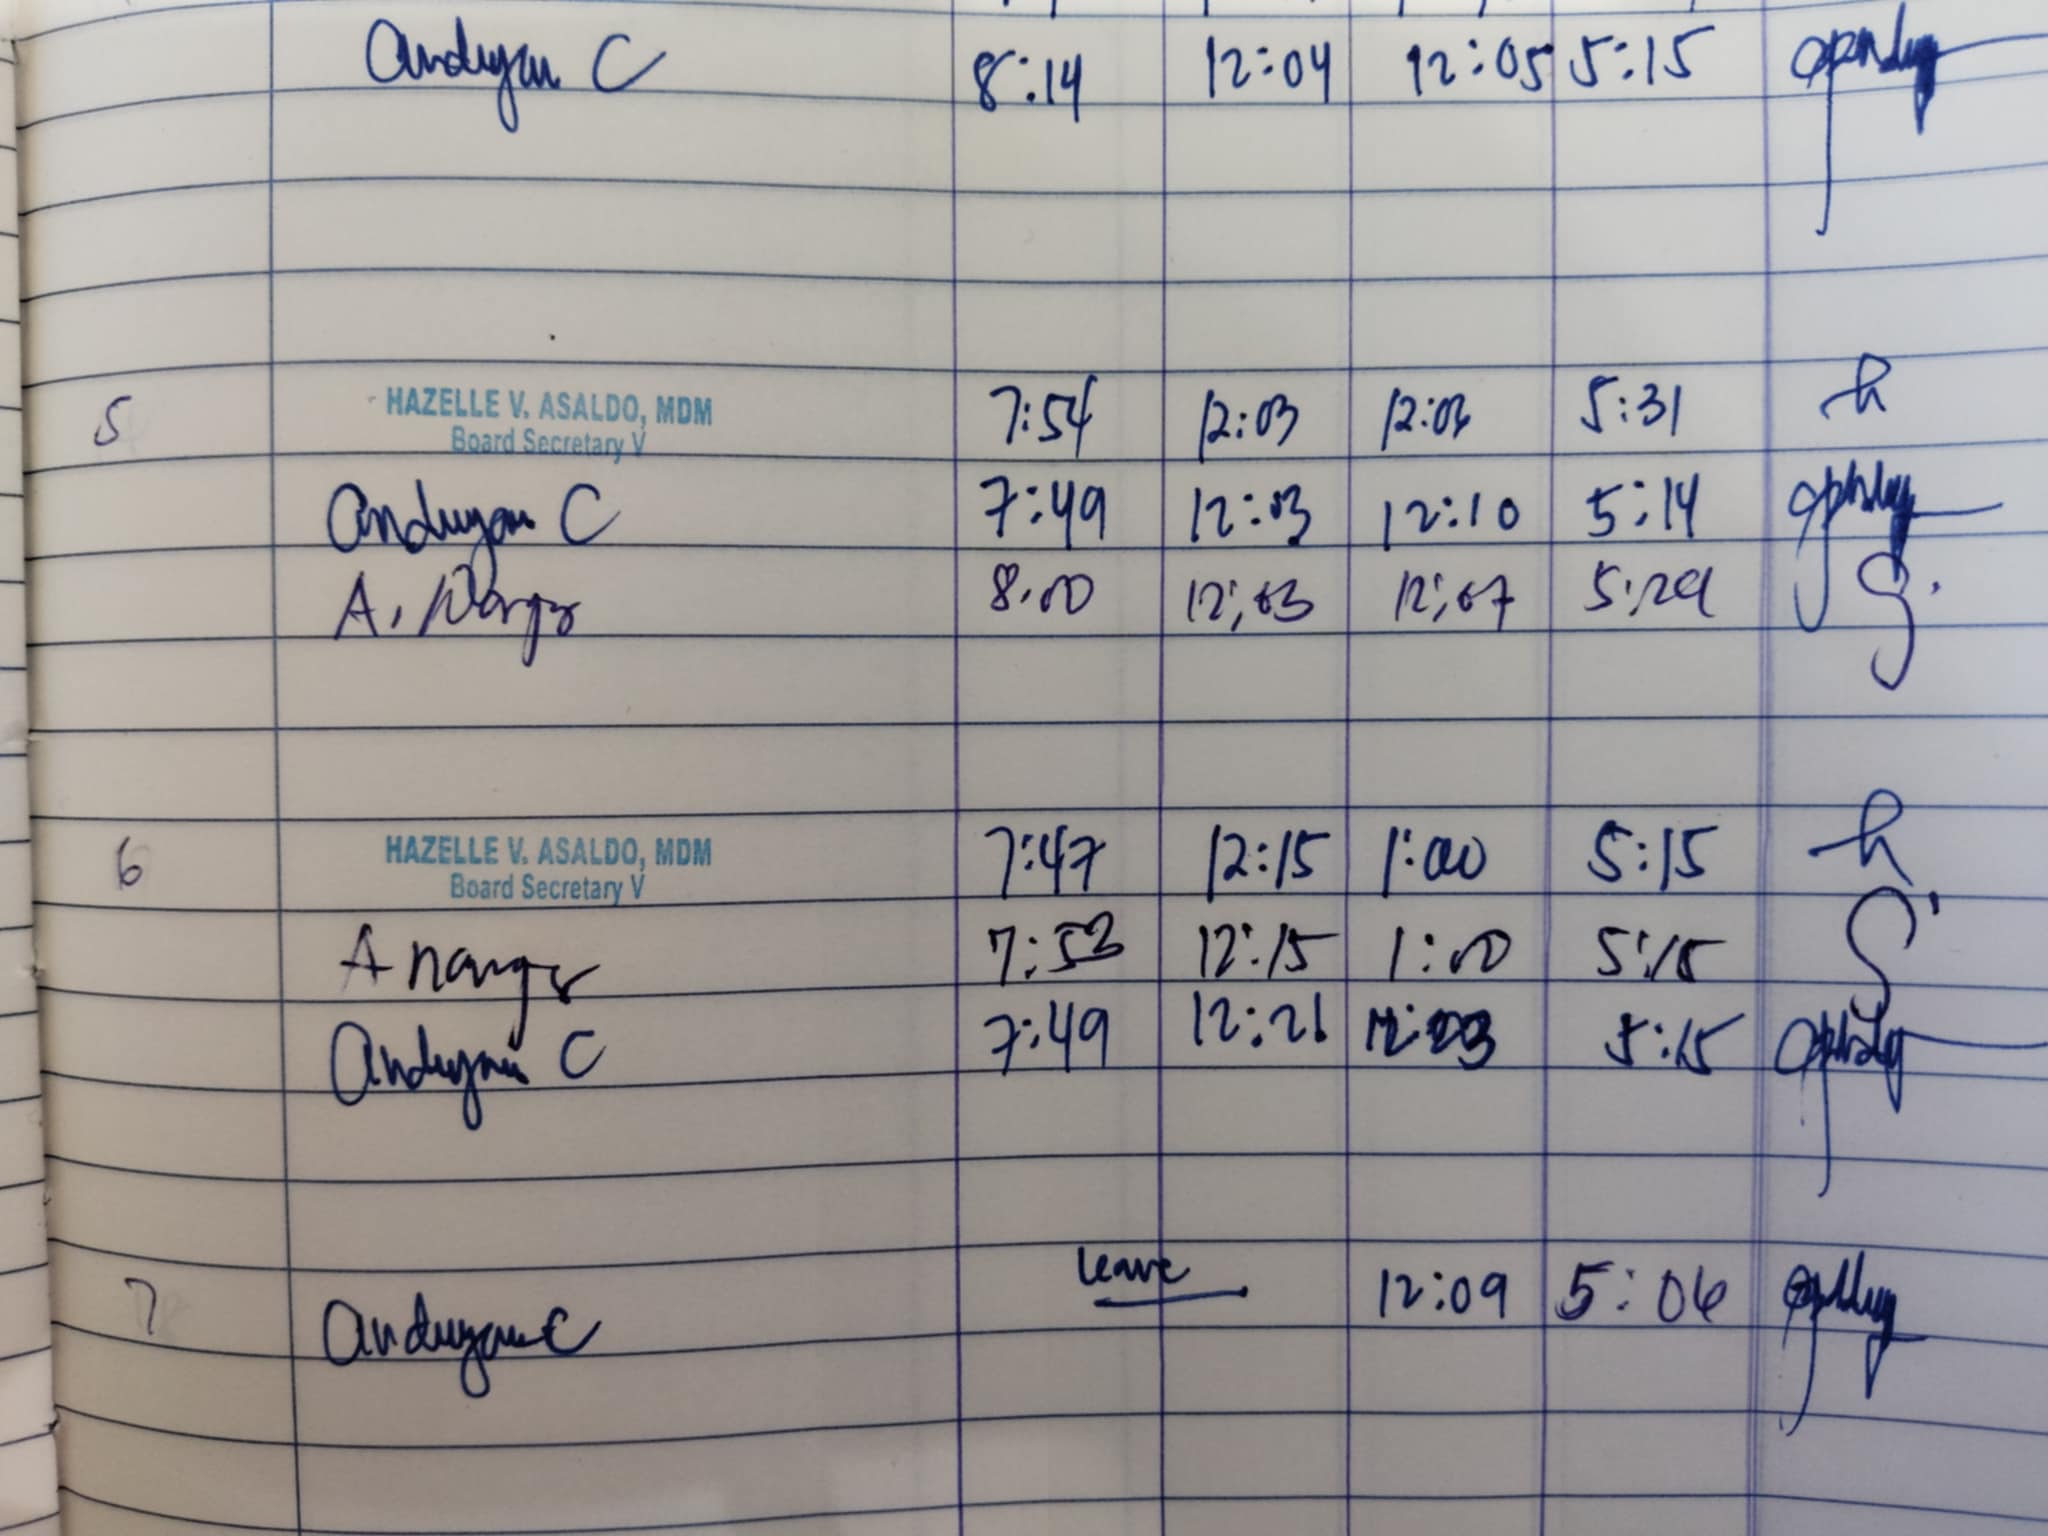 Anduyan C 8:14 12:04 12:05 5:15
5 HAZELLE V. ASALDO, MDM 7:54 12:03 12:03 5:31
Board Secretary V
Anduyan C 7:49 12:03 12:10 5:14
A. 8:00 12:03 12:07 5:29
6 HAZELLE V. ASALDO, MDM 7:47 12:15 1:00 5:15
Board Secretary V
A 7:53 12:15 1:00 5:15
Anduyan C 7:49 12:21 12:23 5:15
7 Anduyan C Leave 12:09 5:06